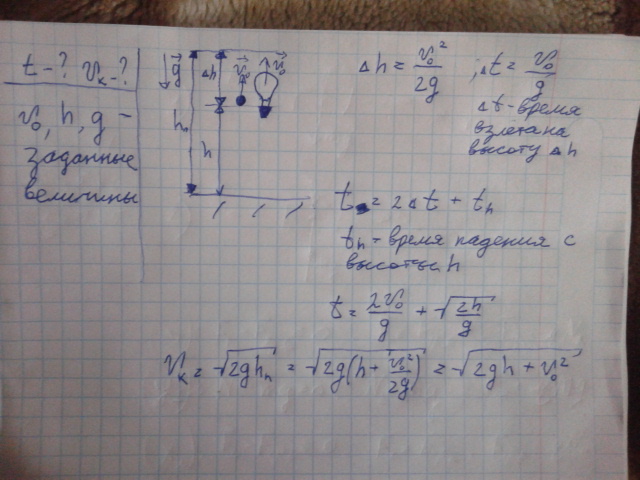 t - ? v_к - ?
v₀, h, g -
заданные
величины
↓g⃗ Δh v⃗₀ v⃗₀
h₀ h
Δh = v₀²/2g ; Δt = v₀/g
Δt - время
взлета на
высоту Δh
t = 2Δt + tₕ
tₕ - время падения с
высоты h
t = 2v₀/g + √(2h/g)
v_к = √(2ghₙ) = √(2g(h + v₀²/2g)) = √(2gh + v₀²)